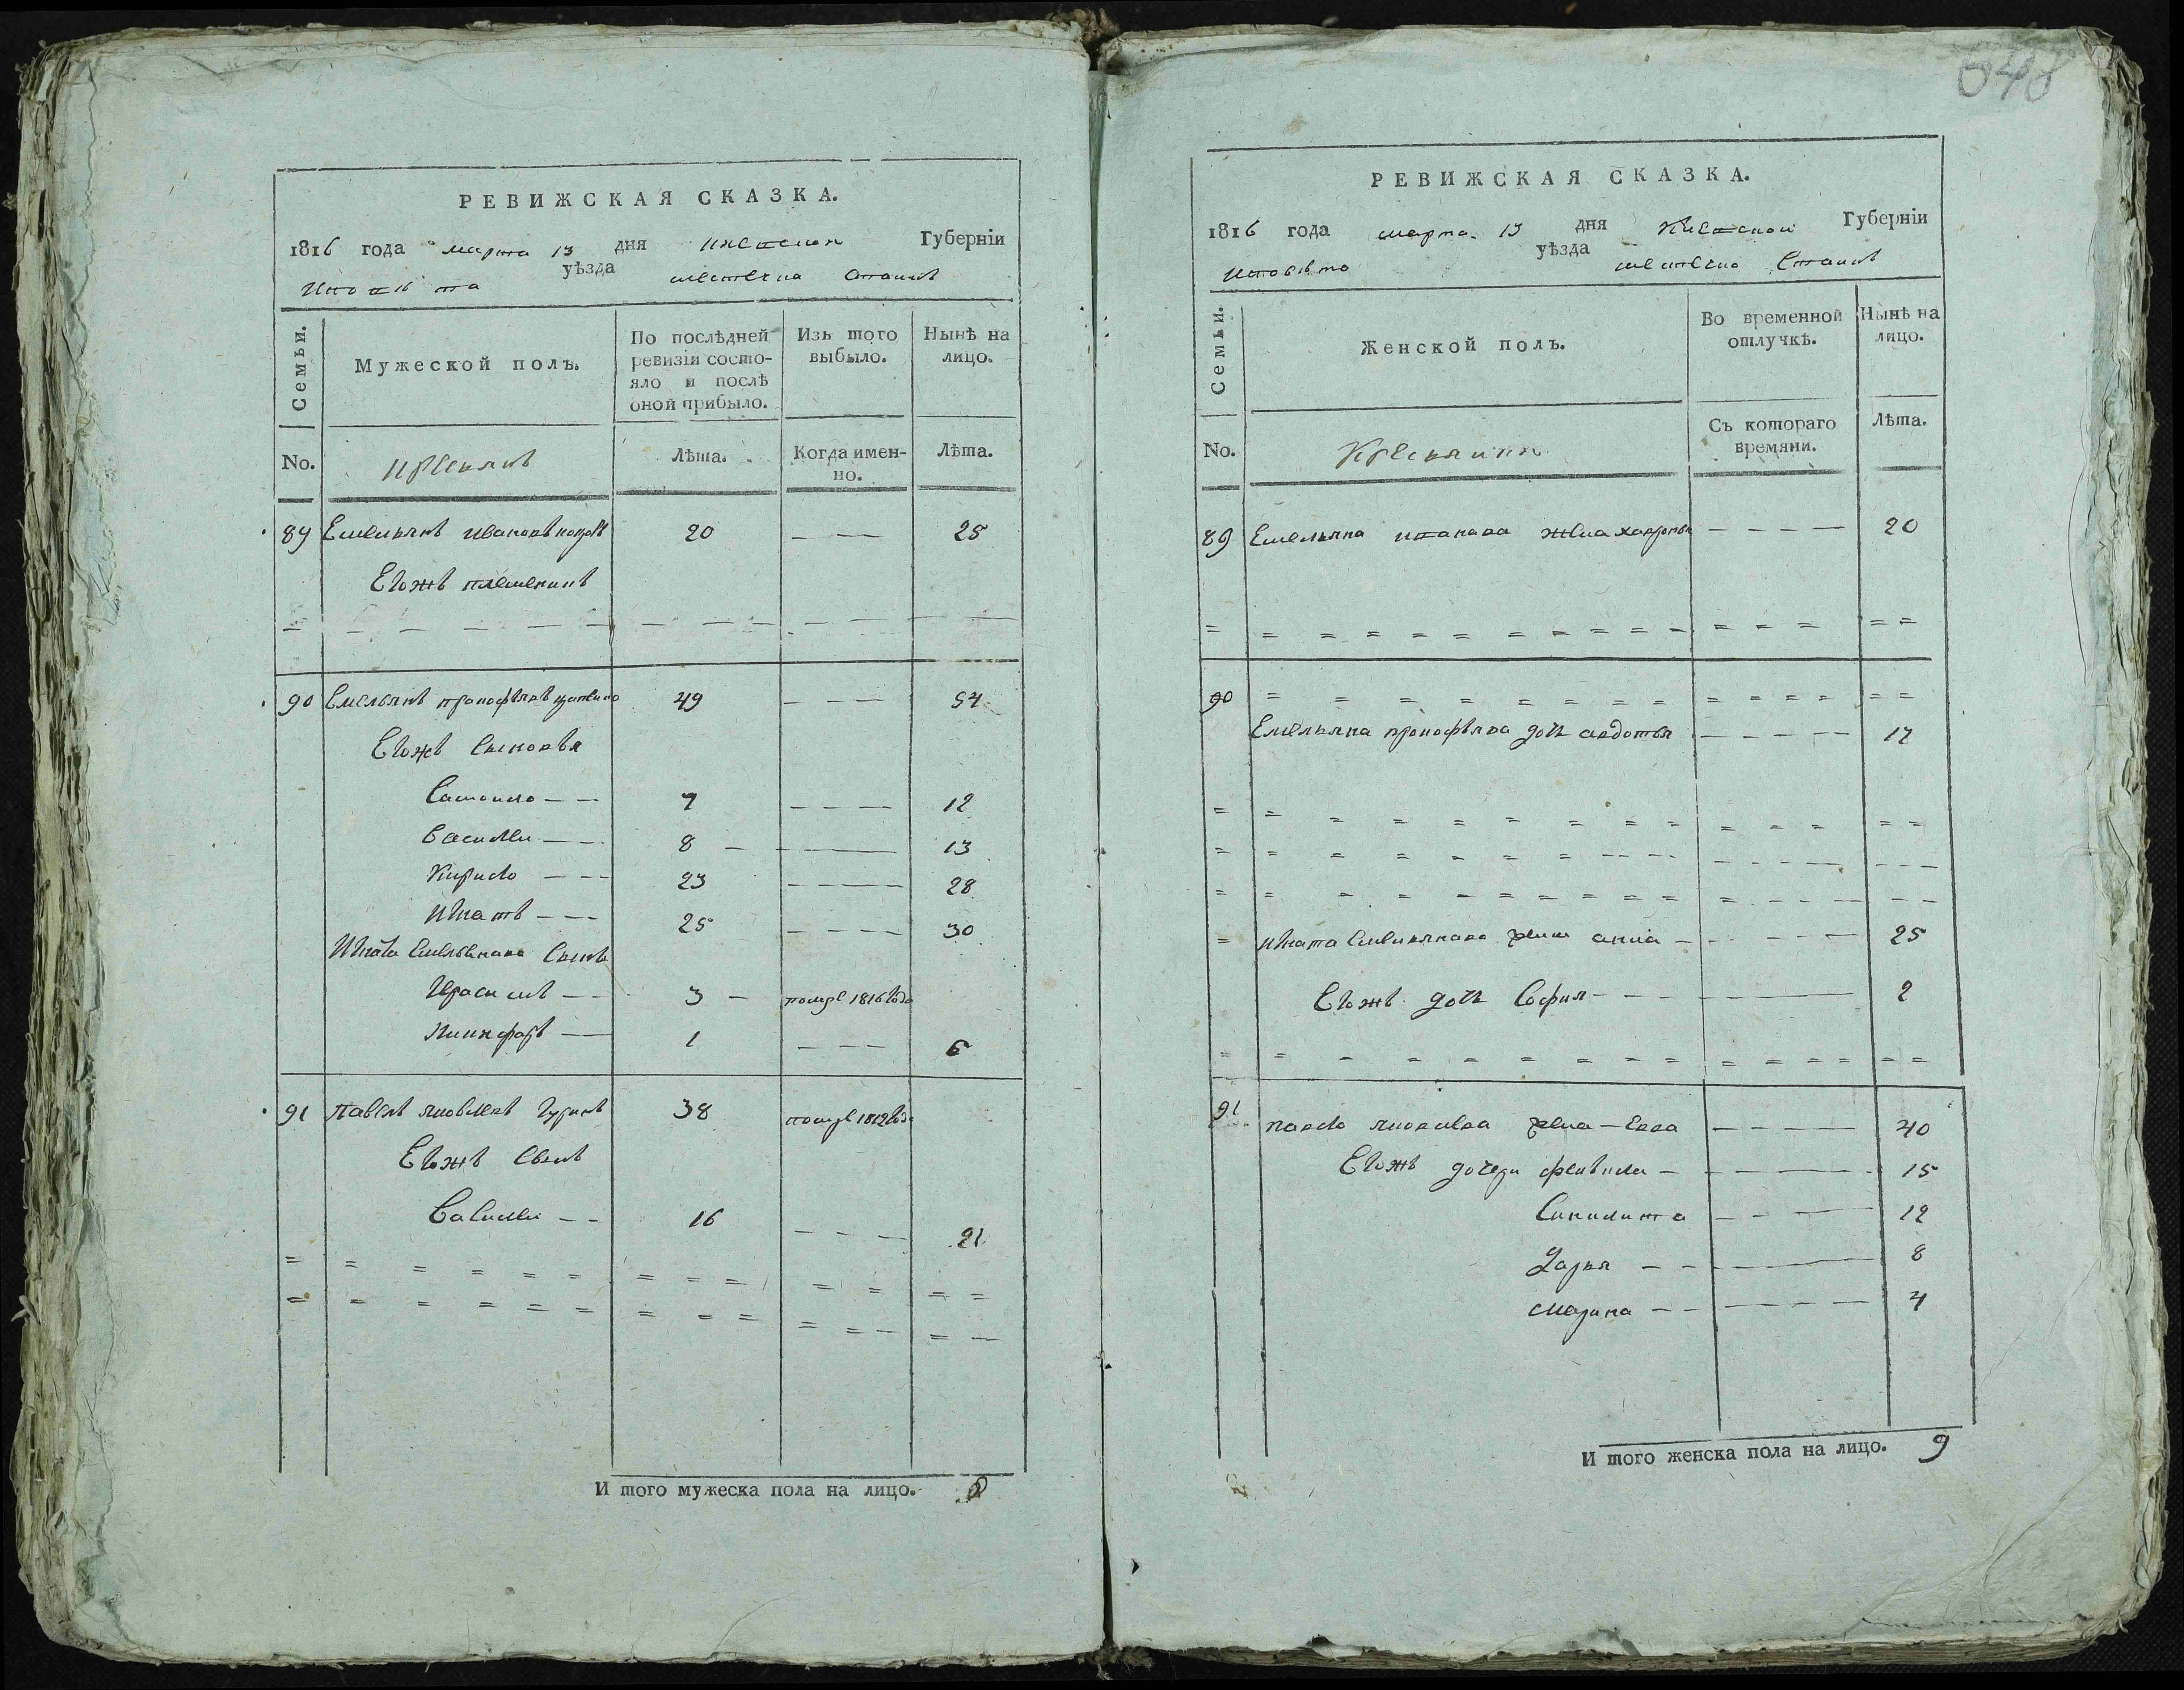 648
РЕВИЖСКАЯ СКАЗКА.
1816 года марта 13 дня Киевской Губерніи
уѣзда местечка Ставищ
Семьи.
Мужеской полъ.
По послѣдней ревизіи состо-
яло и послѣ
оной прибыло.
Изъ того
выбыло.
Нынѣ на
лицо.
No.
Лѣта.
Когда имен-
но.
Лѣта.
89 Емельянъ Ивановъ 20 — — 25
Егожъ племеникъ
90 Емельянъ прокофьевъ 49 — — — 54
Егожъ Сыновья
Самоило — — 7 — — — 12
Василий — — 8 — — — 13
Кирило — — — 23 — — — 28
Игнатъ — — — 25 — — — 30
Игната Емельянова Сынъ
Герасимъ — — 3 — помре 1816 года
Никифоръ — 1 — — — 6
91 Павелъ яковлевъ Гуринъ 38 помре 1812 года
Егожъ Сынъ
Василий — — 16 — — — 21
И того мужеска пола на лицо. 8
РЕВИЖСКАЯ СКАЗКА.
1816 года марта 13 дня Киевской Губерніи
уѣзда местечка Ставищ
Семьи.
Женской полъ.
Во временной
отлучкѣ.
Нынѣ на
лицо.
No.
Съ котораго
времяни.
Лѣта.
89 Емельяна иванова жена — — — — 20
90
Емельяна прокофьева дочь авдотья — — — — 17
Игната Емельянова жена анна — — — — 25
Егожъ дочь София — — — 2
91 павла яковлева жена — Евва — — — — 40
Егожъ дочери — — — 15
— — — 12
Дарья — — — 8
Марина — — — — 4
И того женска пола на лицо. 9